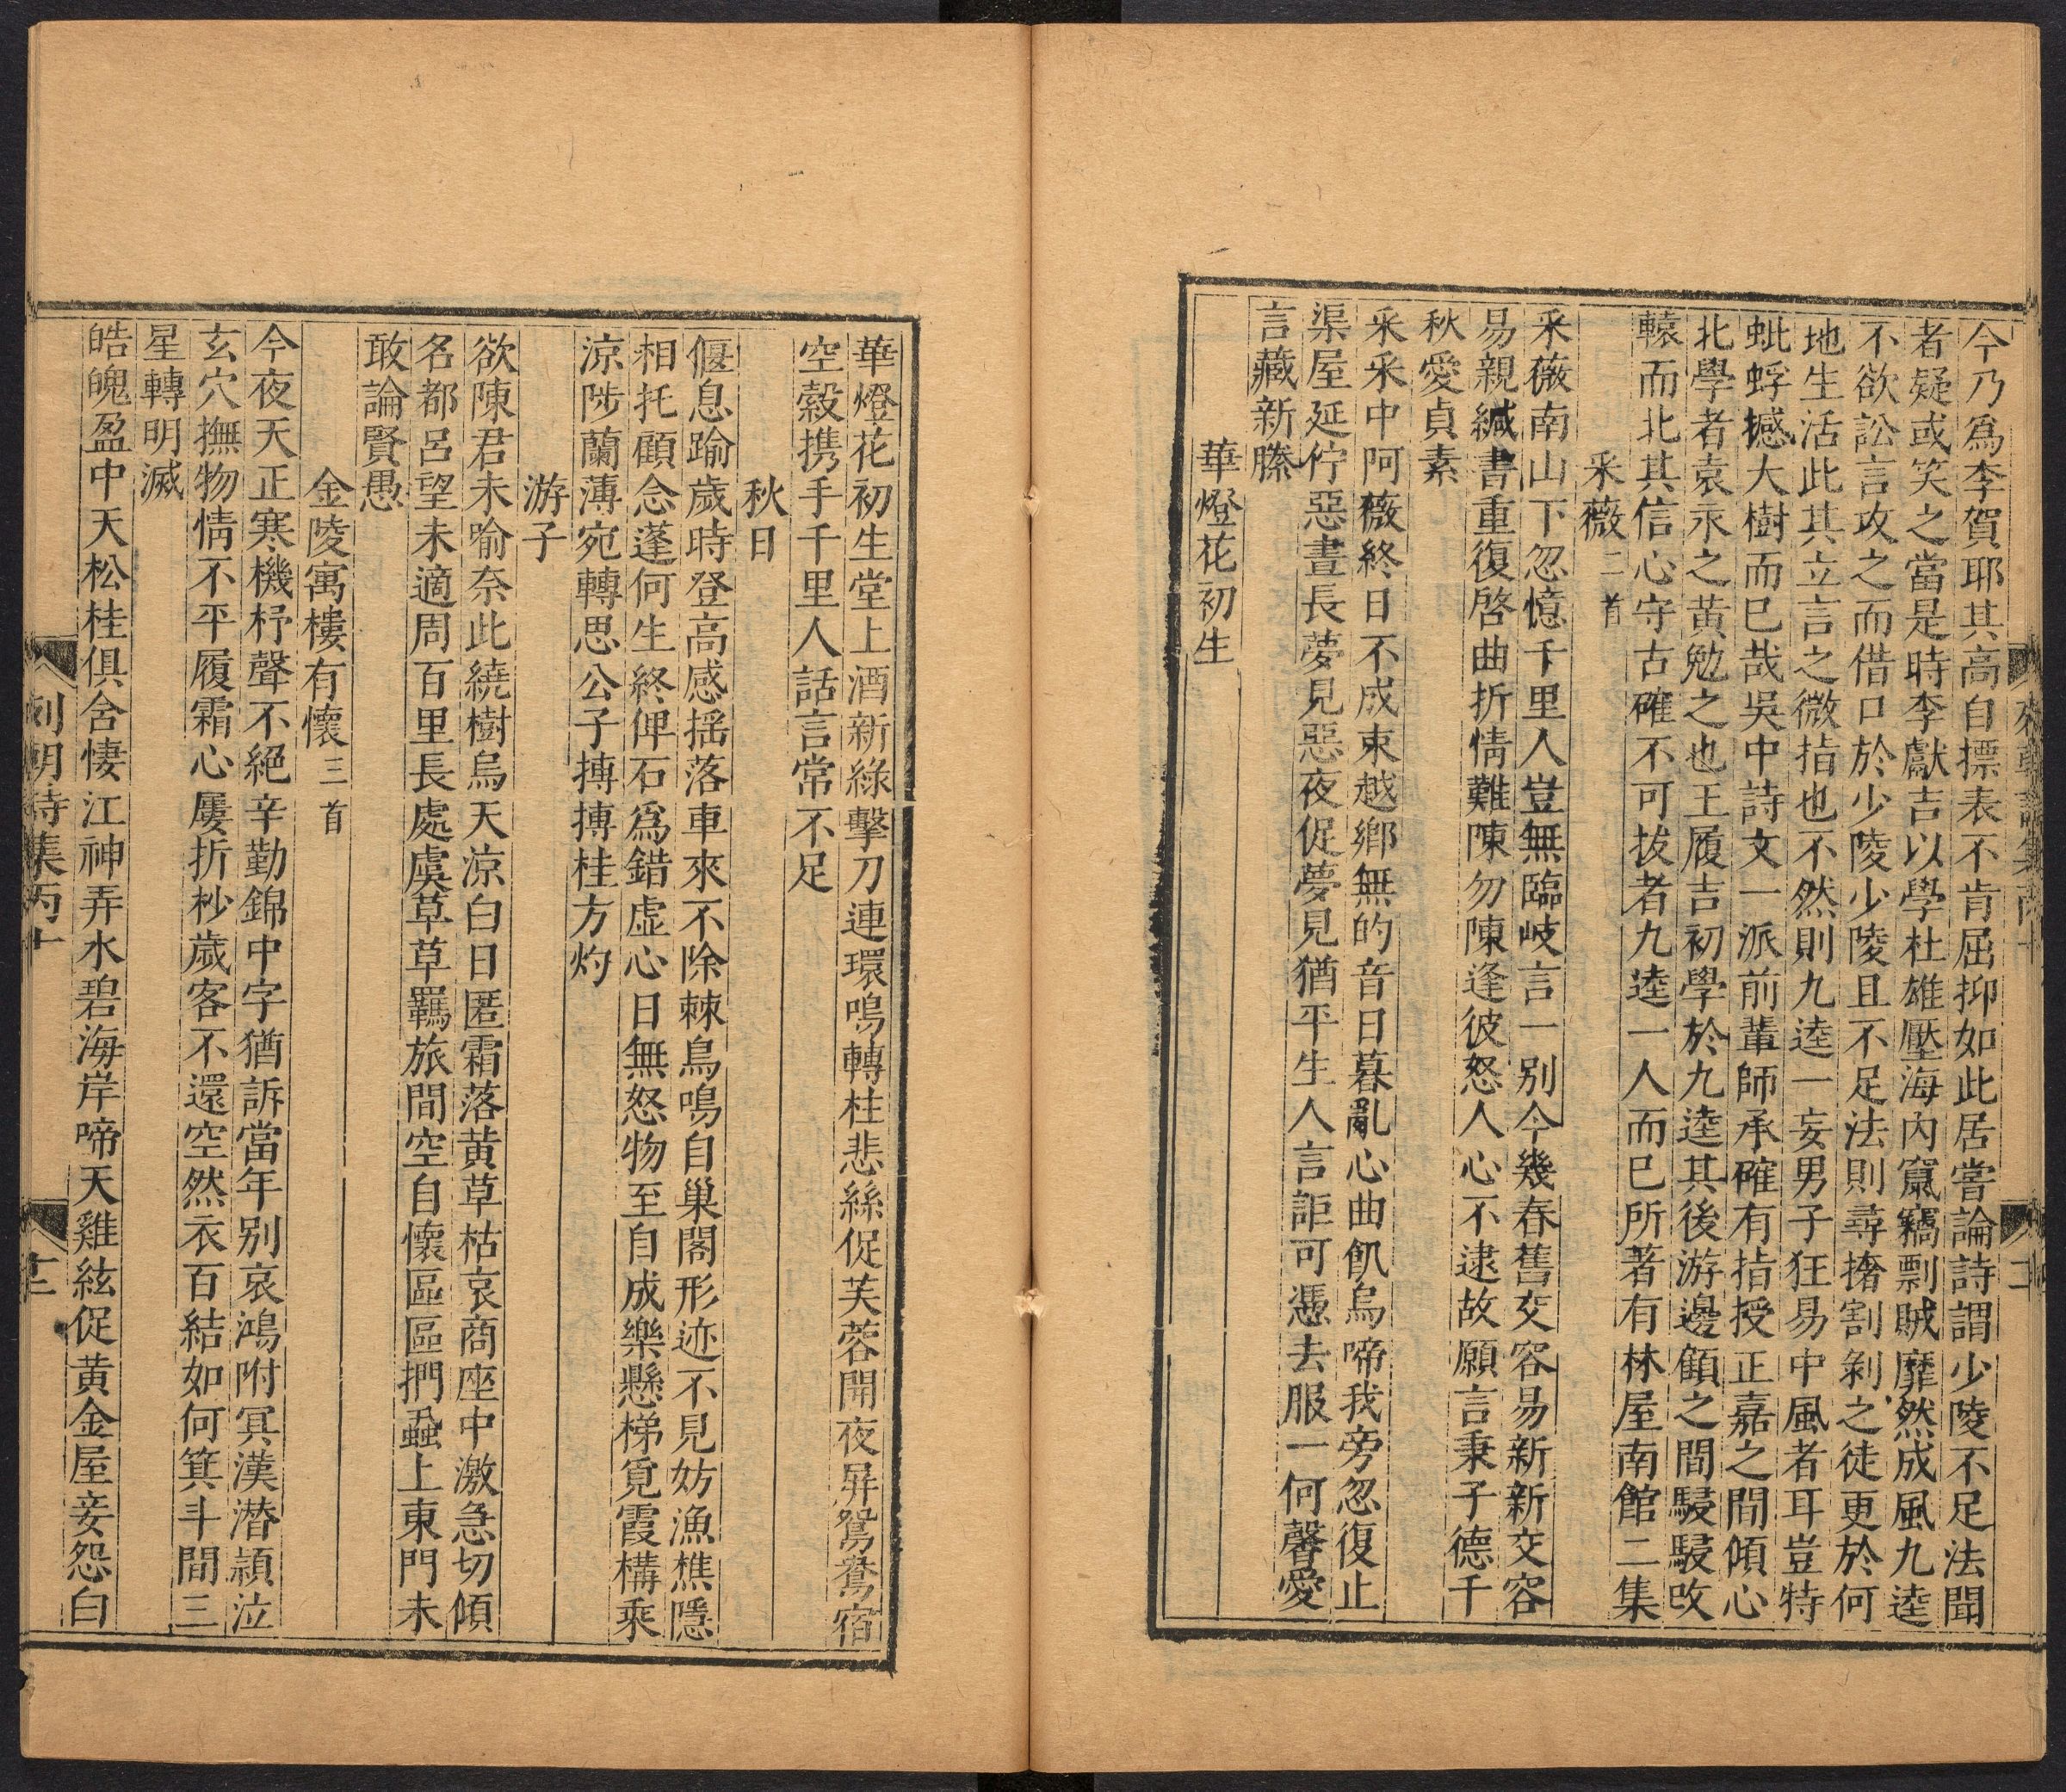 今乃爲李賀耶其高自摽表不肯屈抑如此居嘗論詩謂少陵不足法聞
者疑或笑之當是時李獻吉以學杜雄壓海內竄竊剽賊靡然成風九逵
不欲訟言攻之而借口於少陵少陵且不足法則尋撦割剝之徒更於何
地生活此其立言之微指也不然則九逵一妄男子狂易中風者耳豈特
蚍蜉撼大樹而已哉吳中詩文一派前輩師承確有指授正嘉之間傾心
北學者袁永之黃勉之也王履吉初學於九逵其後游邊顧之間駸駸改
轅而北其信心守古確不可拔者九逵一人而已所著有林屋南館二集
采薇二首
采薇南山下忽憶千里人豈無臨岐言一別今幾春舊交容易新新交容
易親緘書重復啓曲折情難陳勿陳逢彼怒人心不逮故願言秉子德千
秋愛貞素
采采中阿薇終日不成束越鄉無的音日暮亂心曲飢烏啼我旁忽復止
渠屋延佇惡晝長夢見惡夜促夢見猶平生人言詎可憑去服一何馨愛
言藏新縢
華燈花初生
華燈花初生堂上酒新綠擊刀連環鳴轉柱悲絲促芙蓉開夜屏鴛鴦宿
空縠携手千里人話言常不足
秋日
偃息踰歲時登高感揺落車來不除棘鳥鳴自巢閣形迹不見妨漁樵隱
相托顧念蓬何生終俾石爲錯虛心日無怒物至自成樂懸梯覓霞構乘
涼陟蘭薄宛轉思公子摶摶桂方灼
游子
欲陳君未喻奈此繞樹烏天涼白日匿霜落黃草枯哀商座中激急切傾
名都呂望未適周百里長處虞草草羈旅間空自懷區區捫蝨上東門未
敢論賢愚
金陵寓樓有懷三首
今夜天正寒機杼聲不絕辛勤錦中字猶訴當年別哀鴻附冥漢潛頴泣
玄穴撫物情不平履霜心屢折杪歲客不還空然衣百結如何箕斗間三
星轉明滅
皓魄盈中天松桂俱舍悽江神弄水碧海岸啼天雞絃促黃金屋妾怨白
列朝詩集丙十